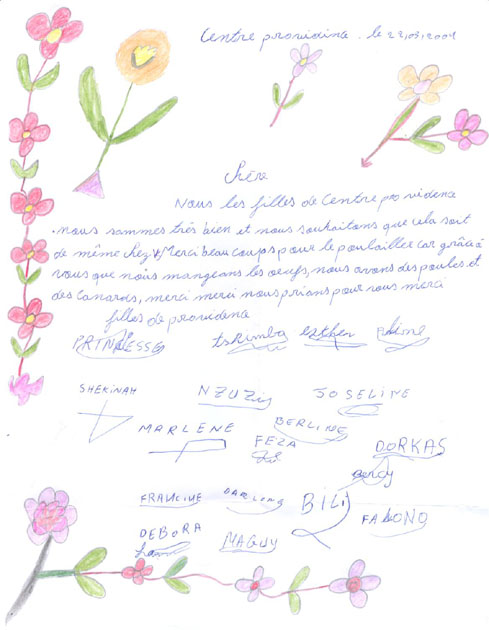 Centre providina. le 22,03,2004
Chère
Nous les filles de Centre providence
nous sommes très bien et nous souhaitons que cela soit
de même chez v Merci beaucoups pour le poulailler car grâce à
vous que nous mangeons les oeufs, nous avons des poules et
des canards, merci merci nous prions pour vous merci
filles de providence
PRINCESSE tshimba esther
SHEKINAH NZUZI JOSELINE
MARLENE BERLINE
FEZA DORKAS
FRANCINE DARLENE BILI FALONO
DEBORA MAGUY